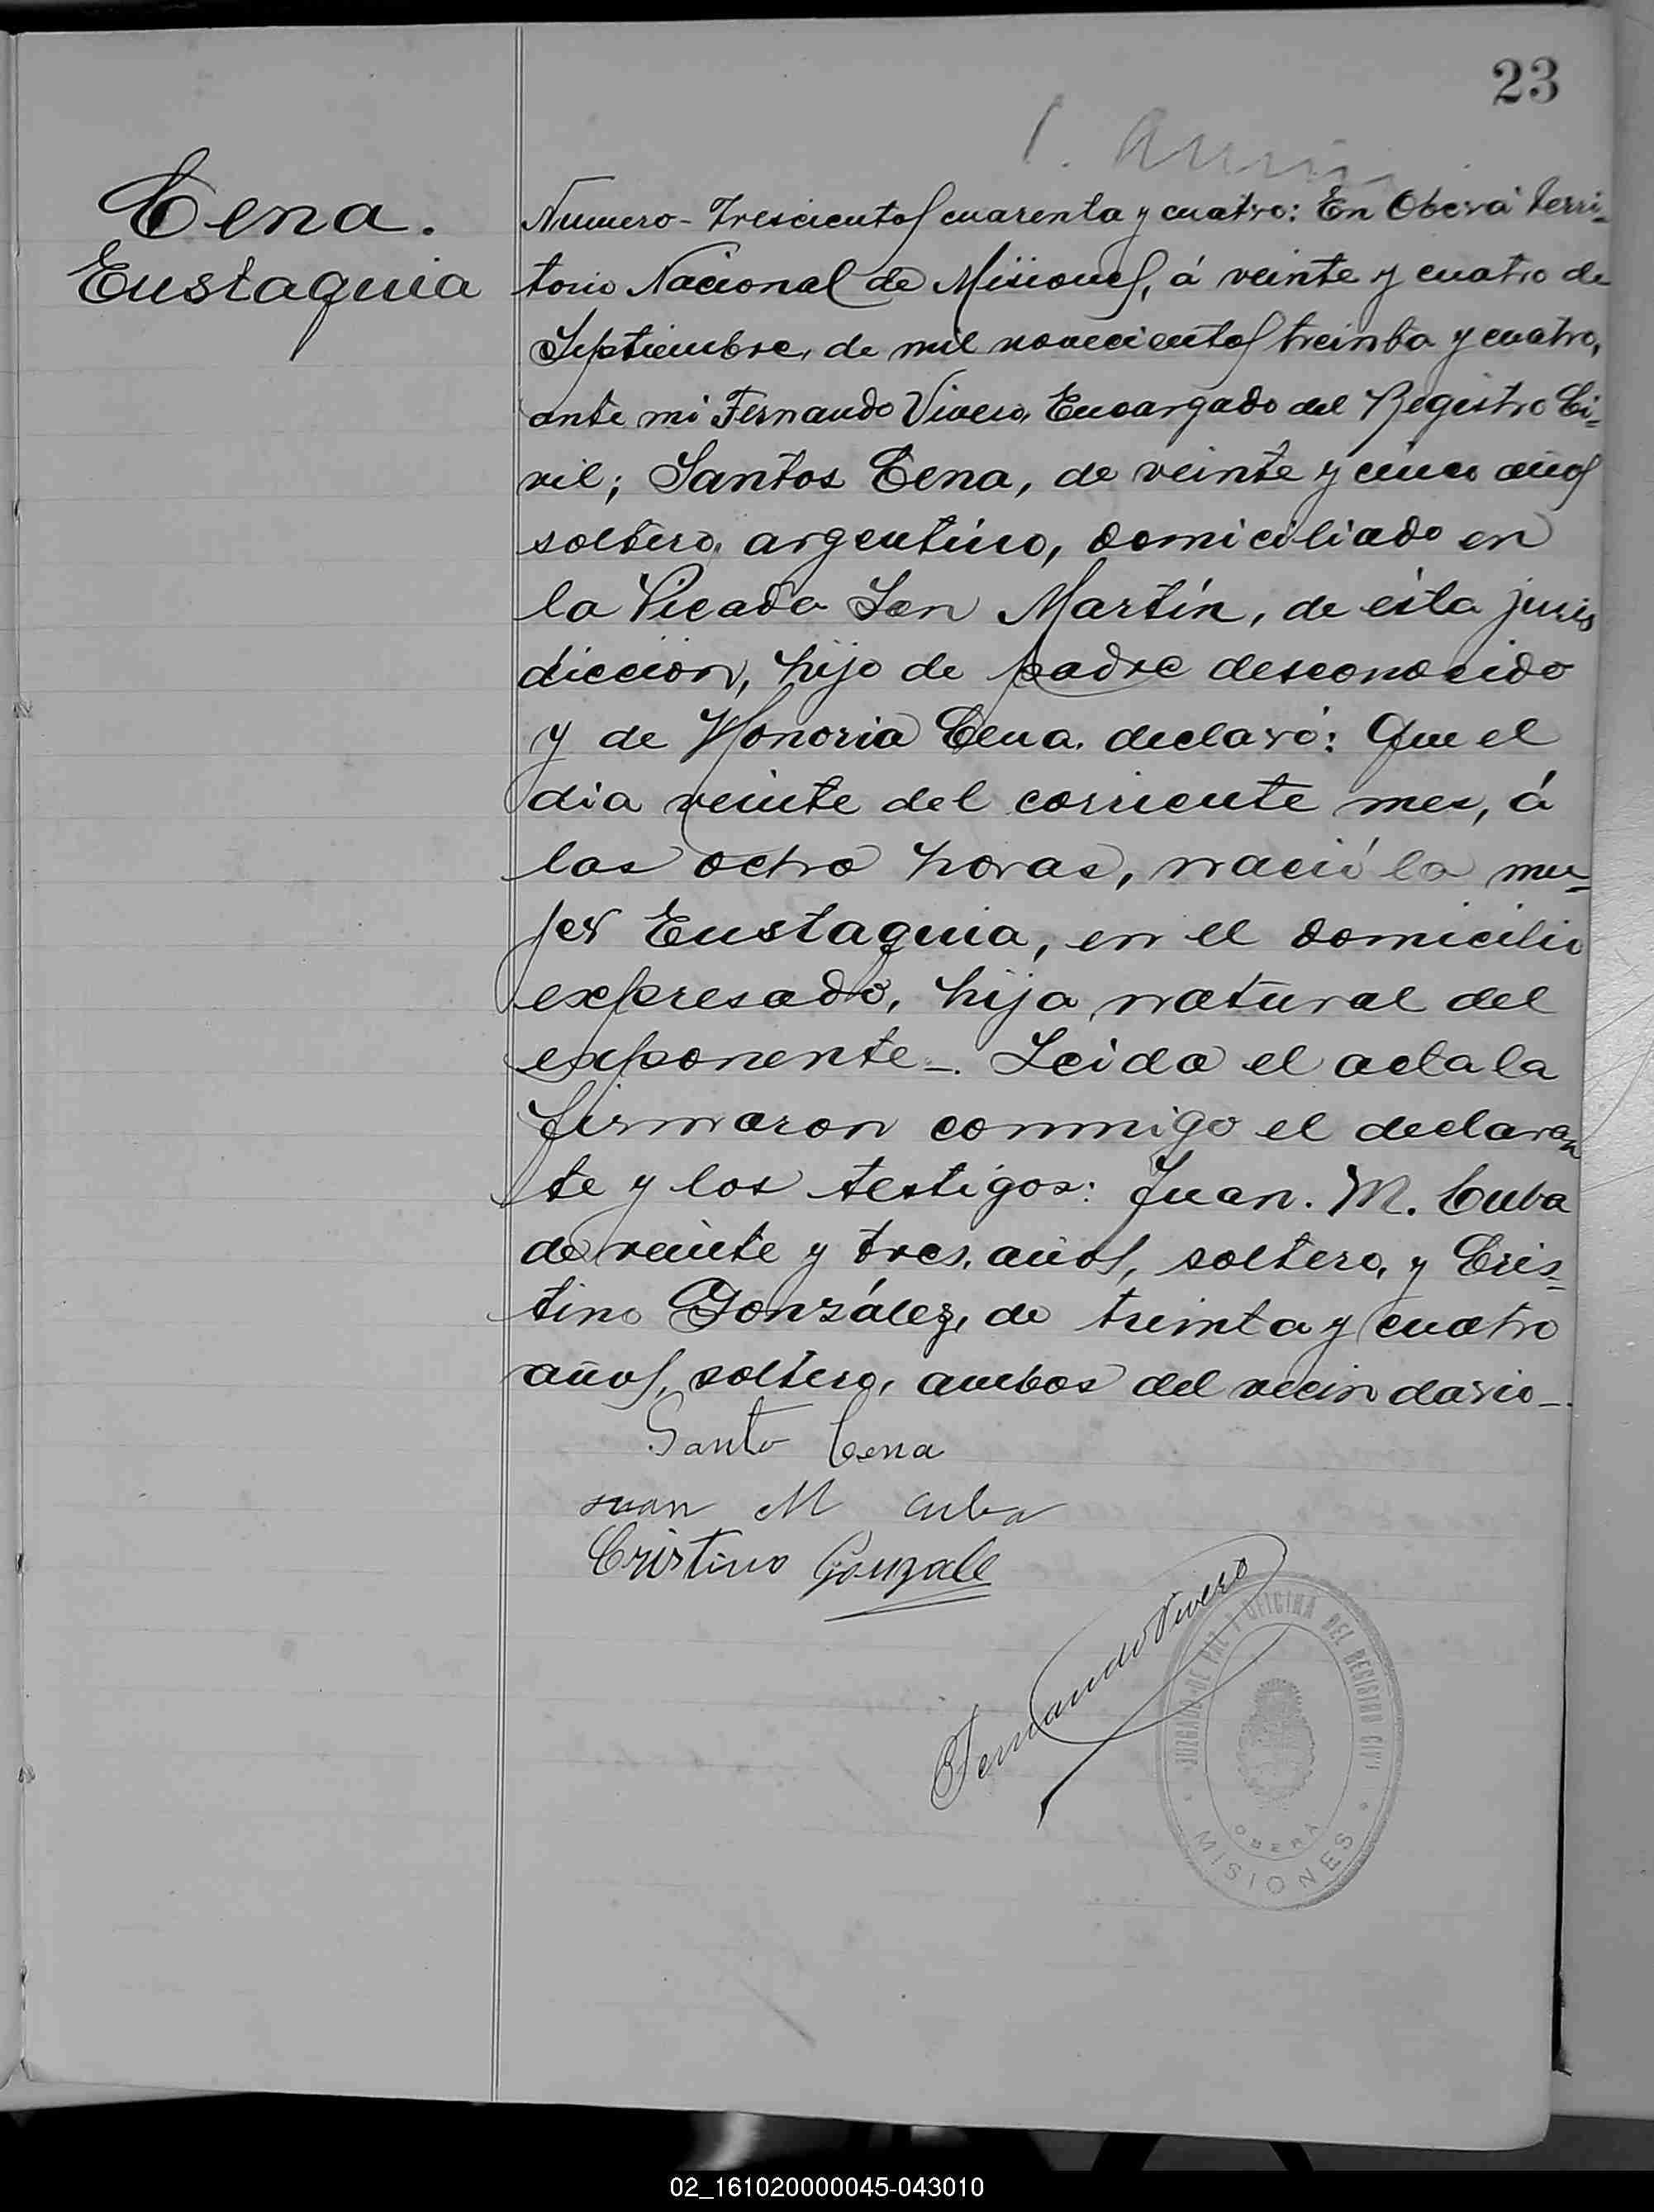 23
Cena.
Eustaquia
Numero - Trescientos cuarenta y cuatro: En Oberá Terri=
torio Nacional de Misiones, á veinte y cuatro de
Septiembre, de mil novecientos treinta y cuatro,
ante mi Fernando Vivero, Encargado del Registro Ci=
vil; Santos Cena, de veinte y cinco años
soltero, argentino, domiciliado en
la Picada San Martín, de ésta juris
diccion, hijo de padre desconocido
y de Honoria Cena, declaró: Que el
dia veinte del corriente mes, á
las ocho horas, nació la mu=
jer Eustaquia, en el domicilio
expresado, hija natural del
exponente-. Leida el acta la
firmaron conmigo el declaran
te y los testigos: Juan. M. Cuba
de veinte y tres, años, soltero, y Cris=
tino González, de treinta y cuatro
años, soltero, ambos del vecindario-.
Santo Cena
Juan M Cuba
Cristino Gonzale
Fernando Vivero
JUZGADO DE PAZ Y OFICINA DEL REGISTRO CIVIL
OBERÁ
MISIONES
02_161020000045-043010